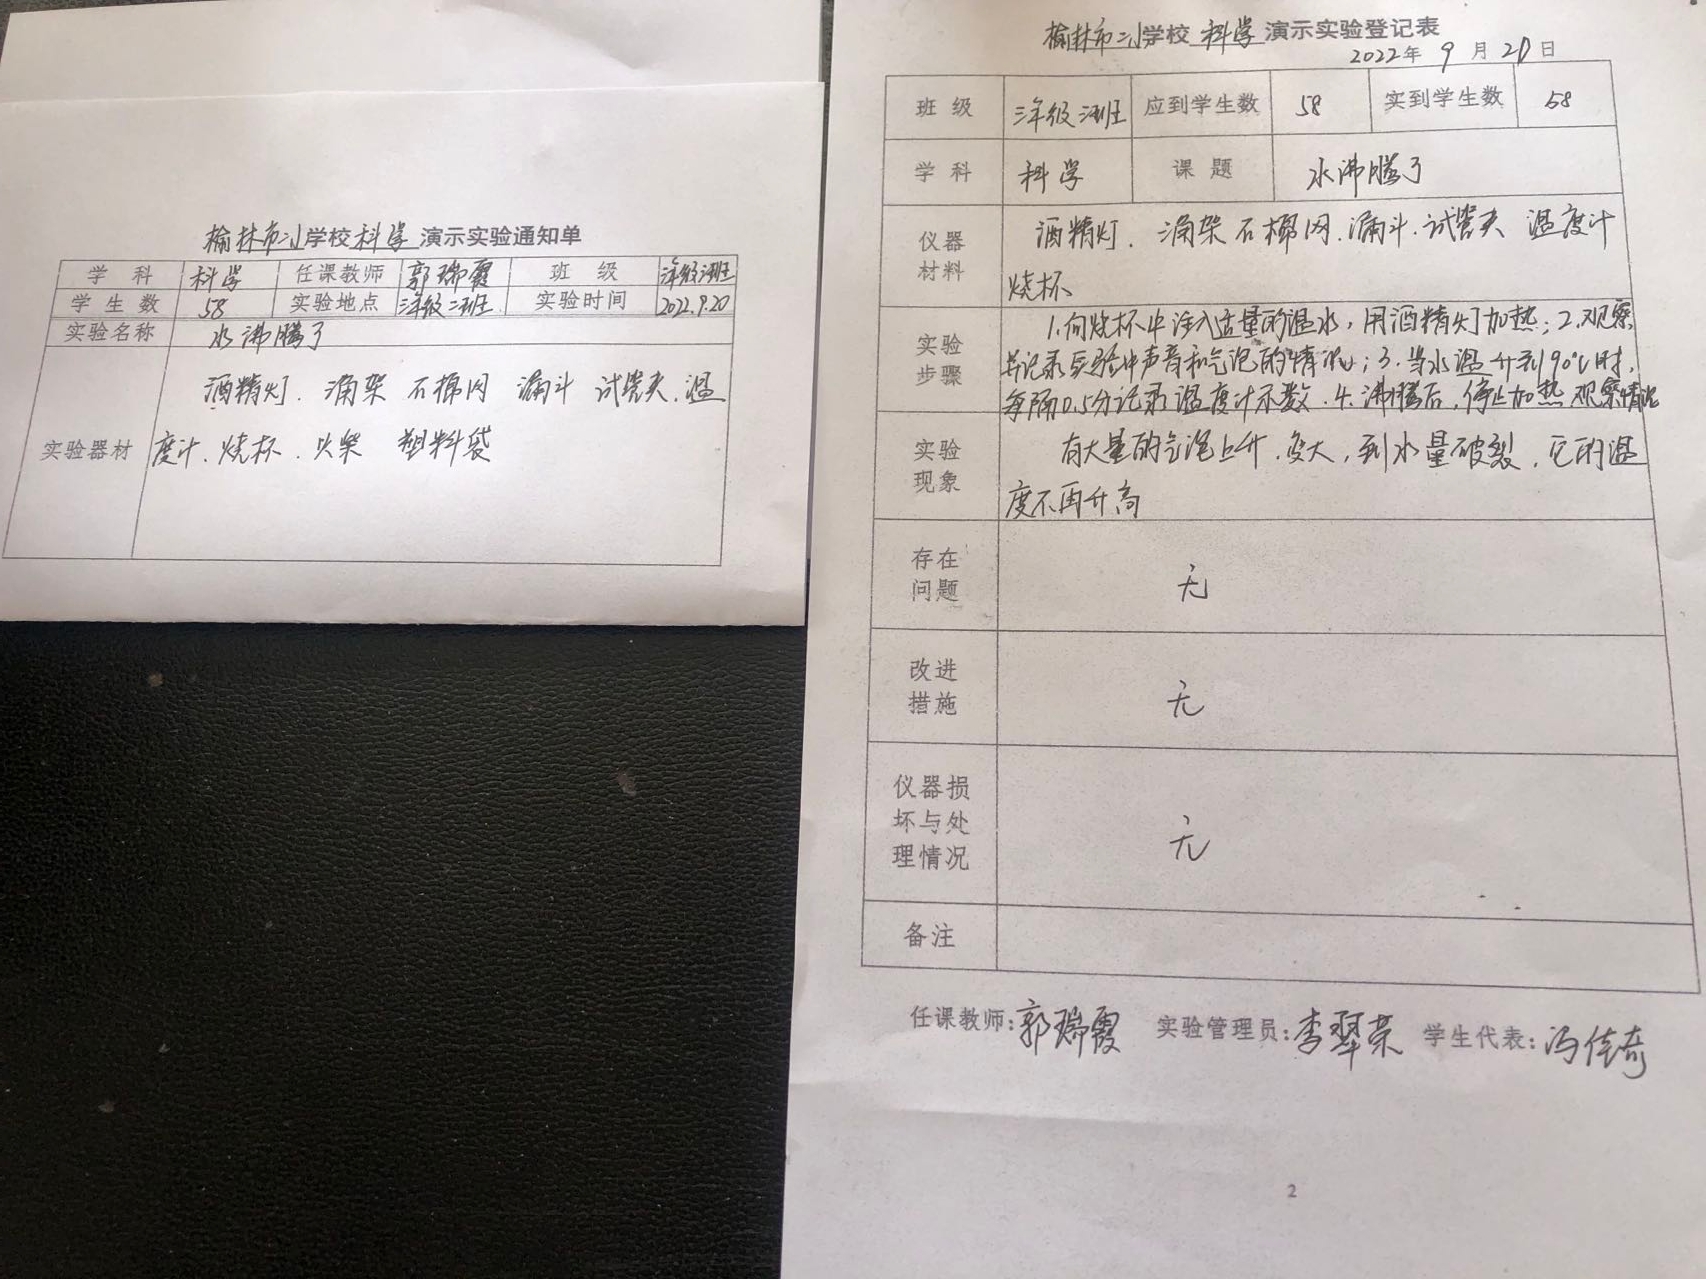 榆林市二小学校科学演示实验通知单
学 科 科学 任课教师 郭瑞霞 班 级 三年级二班
学 生 数 58 实验地点 三年级二班 实验时间 2022.9.20
实验名称 水沸腾了
酒精灯. 漏架 石棉网 漏斗 试管夹.温
实验器材 度计、烧杯、火柴 塑料袋
榆林市二小学校 科学 演示实验登记表
2022年 9 月 20 日
班 级 三年级二班 应到学生数 58 实到学生数 58
学 科 科学 课 题 水沸腾了
仪器 酒精灯. 漏架 石棉网.漏斗.试管夹 温度计
材料 烧杯
1.向烧杯中注入适量的温水，用酒精灯加热；2.观察
实验 并记录实验中声音和气泡的情况；3.当水温升到90℃时，
步骤 每隔0.5分记录温度计示数.4.沸腾后，停止加热 观察情况
实验 有大量的气泡上升.变大，到水量破裂.它的温
现象 度不再升高
存在
问题 无
改进
措施 无
仪器损
坏与处 无
理情况
备注
任课教师:郭瑞霞 实验管理员:李翠荣 学生代表:冯佳奇
2